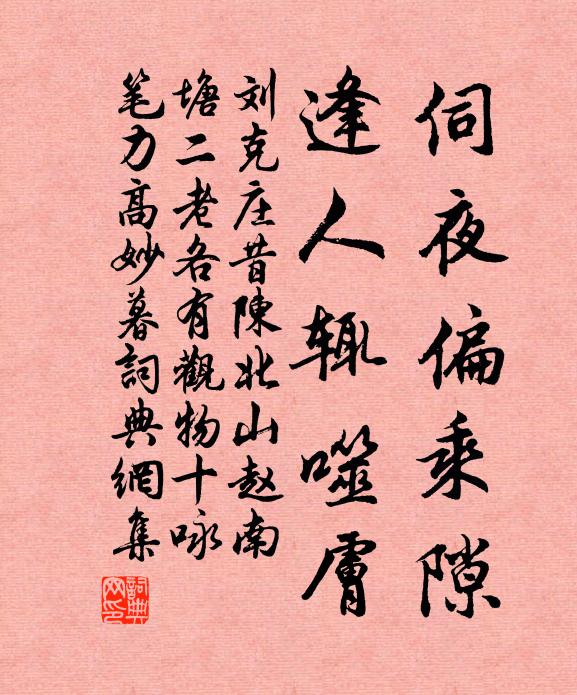 伺夜偏乘隙
逢人辄噬膚
刘克庄昔陳北山赵南
塘二老各有觀物十咏
笔力高妙暮詞典網集
詞典
网印